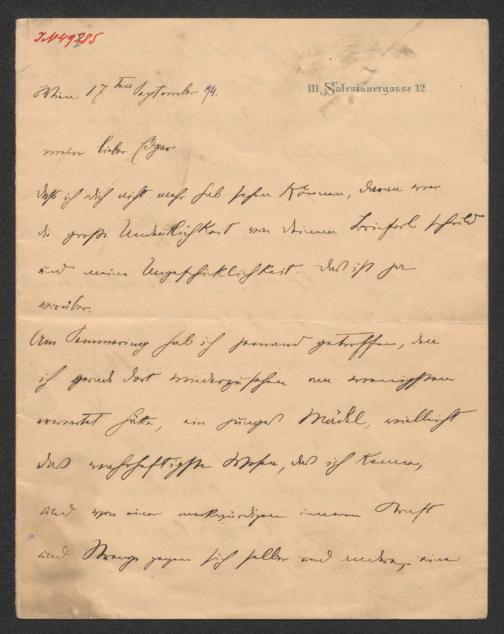 IN 49285
III Salesianergasse 12
Wien 17ten September 94.
mein lieber Edgar
daß ich dich nicht mehr hab sehen können, daran war
die große Undeutlichkeit von deinem Brieferl schuld
und meine Ungeschicklichkeit. Das ist ja
vorüber.
Am Semmering hab ich jemand getroffen, den
ich gerade dort wiederzusehen am wenigsten
erwartet hätte, ein junges Mädel, vielleicht
das wahrhaftigste Wesen, das ich kenne,
und von einer merkwürdigen inneren Kraft
und Strenge gegen sich selber und andere, eine